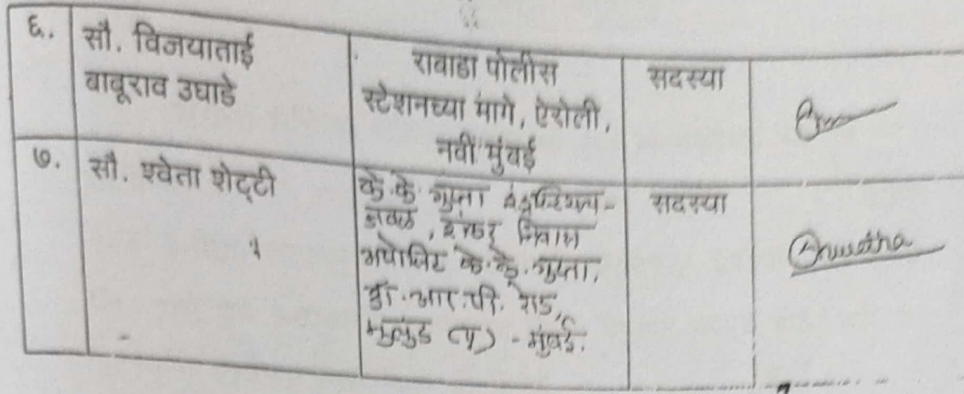 ६.
सौ. विजयाताई
बाबूराव उघाडे
रावाडा पोलीस
स्टेशनच्या मागे, ऐरोली,
नवी मुंबई
सदस्या
७.
सौ. श्वेता शेट्टी
के.के. गुप्ता इंडस्ट्रियल-
जवळ, शंकर निवास
अपोजिट के.के. गुप्ता,
डॉ.आर.पी. रोड,
मुलुंड (प) - मुंबई.
सदस्या